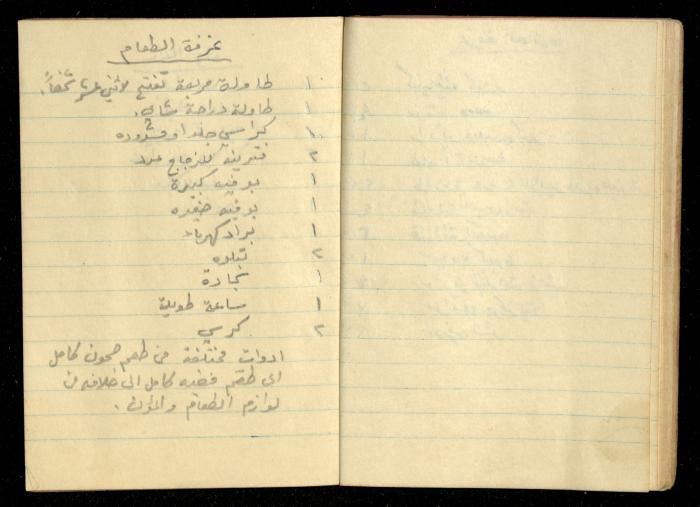 غرفة الطعام
١ طاولة مربعة تفتح لاثني عشر شخصاً.
١ طاولة دراجة شاي.
١٠ كراسي جلد او
٢ فترينة للزجاج عدد
١ بوفيه كبيرة
١ بوفيه صغيره
١ براد كهرباء
٢ تبلوه
١ سجادة
١ ساعة طويلة
٢ كرسي
ادوات مختلفة من طقم صحون كامل
الى طقم فضه كامل الى خلافه من
لوازم الطعام والمؤن.